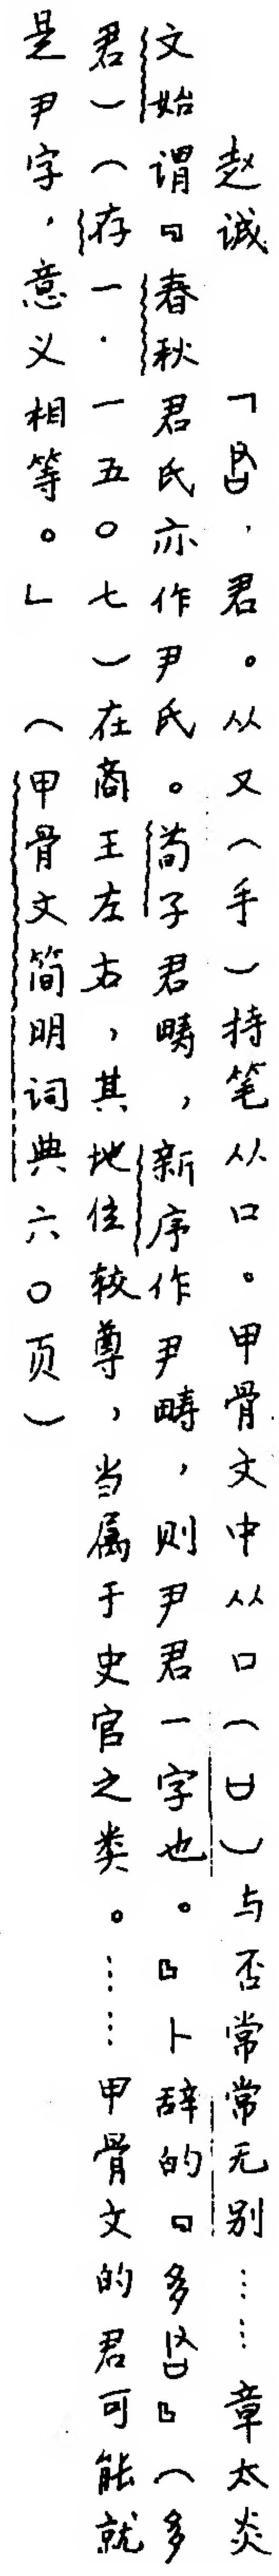 赵诚　「𠱩，君。从又（手）持笔从口。甲骨文中从口（ㅂ）与否常常无别……章太炎
文始谓『春秋君氏亦作尹氏。荀子君畴，新序作尹畴，则尹君一字也。』卜辞的『多』（多
君）（存一·一五〇七）在商王左右，其地位较尊，当属于史官之类。……甲骨文的君可能就
是尹字，意义相等。」（甲骨文简明词典六〇页）